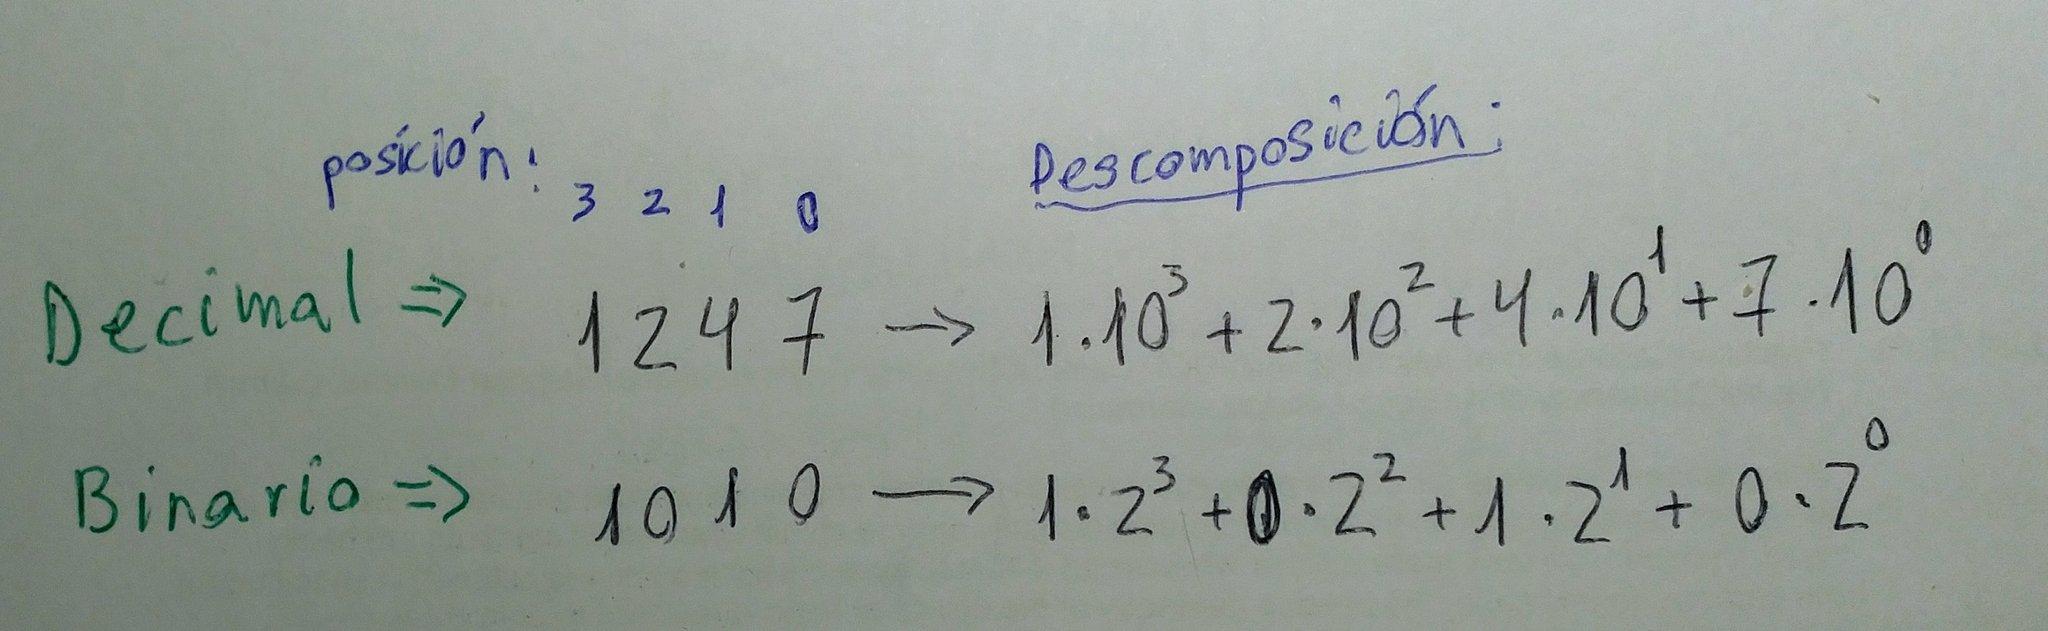 posición: 3 2 1 0 Descomposición:
Decimal => 1 2 4 7 → 1·10³ + 2·10² + 4·10¹ + 7·10⁰
Binario => 1 0 1 0 → 1·2³ + 0·2² + 1·2¹ + 0·2⁰